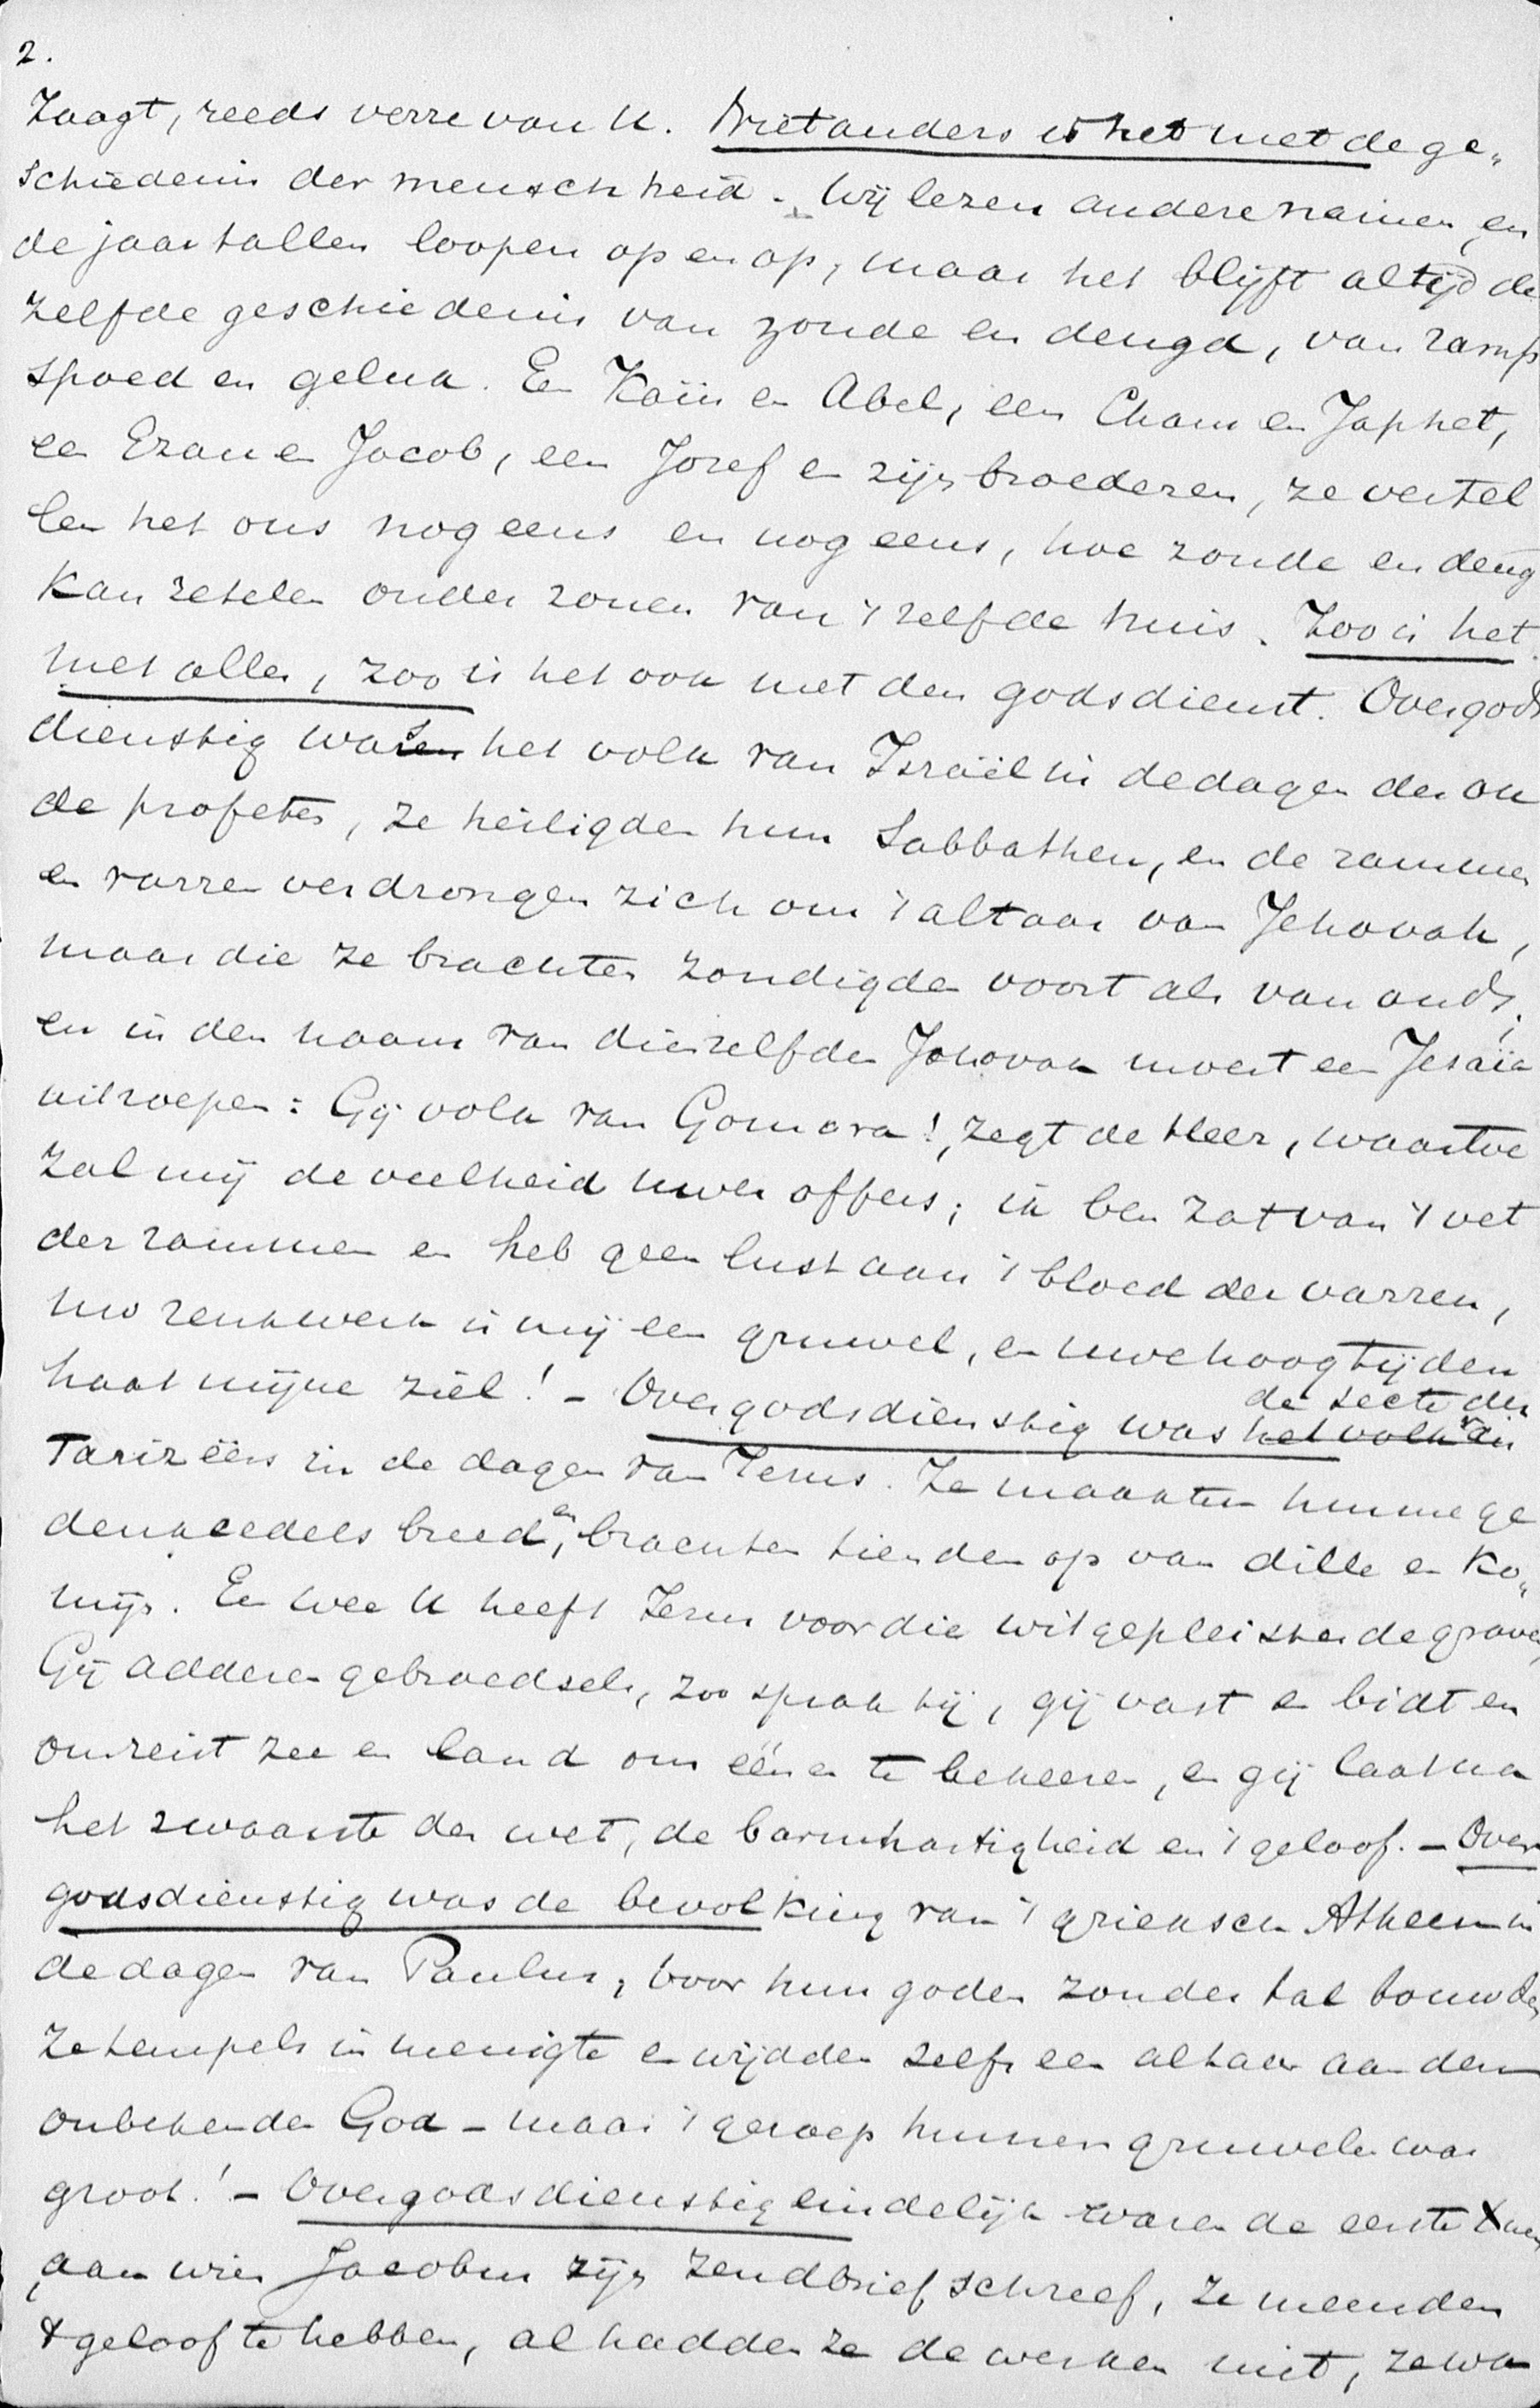 2.
zaagt, reeds verre van U. Niet anders is het met de ge„
schiedenis der menschheid. Wij lezen andere namen, en
de jaartallen loopen op en op, maar het blijft altijd de
zelfde geschiedenis van zonde en deugd, van ramp
spoed en geluk. En Kaïn en Abel, een Cham en Japhet,
een Ezau en Jacob, een Jozef en zijn broederen, ze vertel
len het ons nog eens en nog eens, hoe zonde en deug
kan zetelen onder zonen van 't zelfde huis. Zoo is het
met alles, zoo is het ook met den godsdienst. Overgods
dienstig was het volk van Israël in de dagen der ou
de profeten, ze heiligden hun Sabbathen, en de rammen
en varren verdrongen zich om 't altaar van Jehovah,
maar die ze brachten zondigden voort als van ouds,
en in den naam van dienzelfden Jehovah moest een Jesaïa
uitroepen: Gij volk van Gomora!, zegt de Heer, waartoe
zal mij de veelheid uwer offers; ik ben zat van 't vet
der rammen en heb geen lust aan 't bloed der varren,
uw reukwerk is mij een gruwel, en uwe hoogtijden
haat mijne ziel! - Overgodsdienstig was de secte der
Farizëërs in de dagen van Jezus. Ze maakten hunne ge
denkcedels breed, en brachten tienden op van dille en ko„
mijn. En wee U heeft Jezus voor die witgepleisterde graven,
Gij adderengebroedsels, zoo sprak hij, gij vast en bidt en
omreist zee en land om éénen te bekeeren, en gij laat na
het zwaarste der wet, de barmhartigheid en 't geloof. - Over
godsdienstig was de bevolking van 't grieksch Atheen in
de dagen van Paulus, voor hun goden zonder tal bouwden
ze tempels in menigte en wijdden zelfs een altaar aan den
onbekenden God - maar 't geroep hunner gruwelen was
groot! - Overgodsdienstig eindelijk waren de eerste Xnen
aan wien Jacobus zijn zendbrief schreef, ze meenden
't geloof te hebben, al hadden ze de werken niet, ze wa